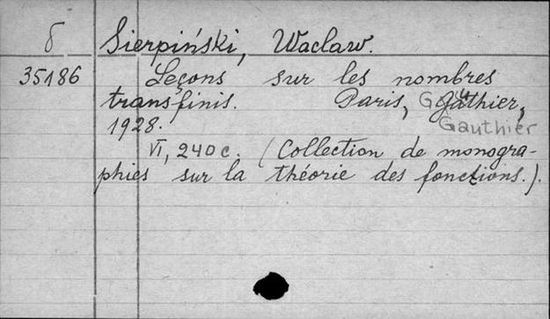 б Sierpiński, Wacław.
35186 Leçons sur les nombres
transfinis. Paris, Gauthier,
1928. Gauthier
VI, 240 c. (Collection de monogra-
phies sur la théorie des fonctions.).